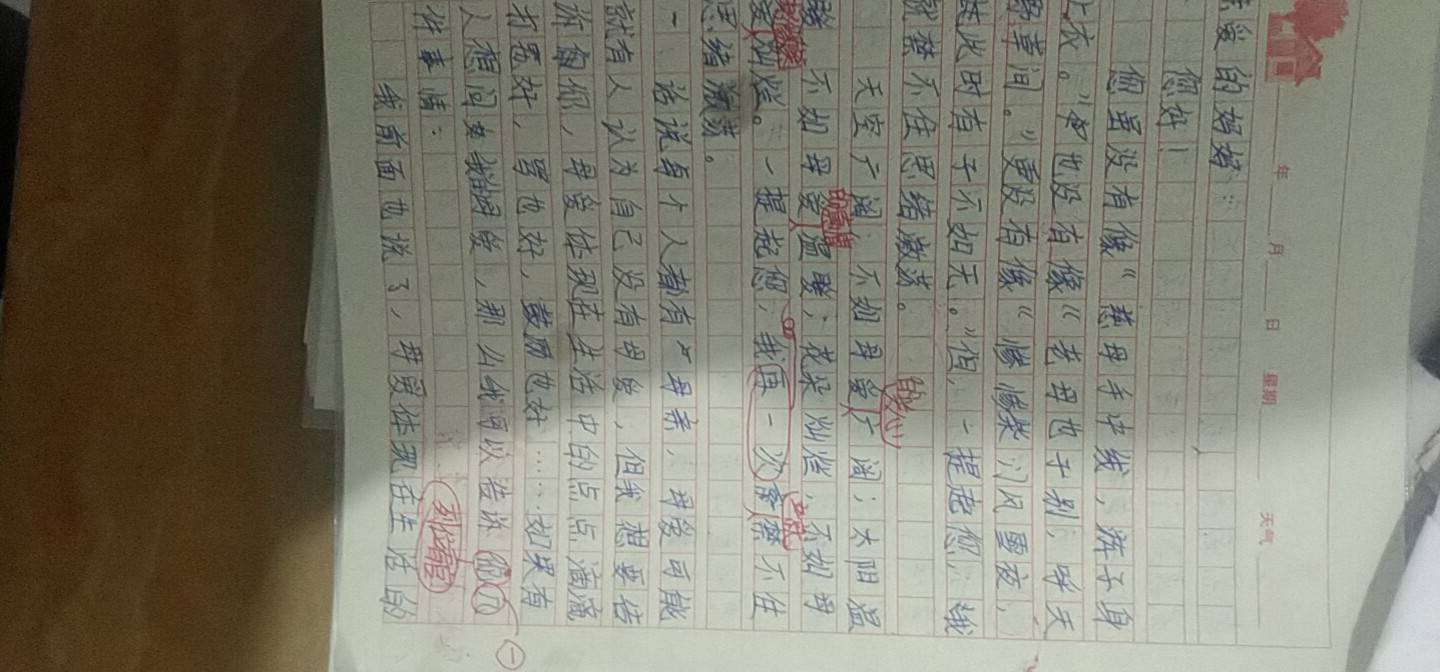 年 月 日 星期 天气
爱的妈妈：
您好！
您虽没有像“慈母手中线，游子身
上衣。”也没有像“老母也于别，呼天
野草间。”更没有像“惨惨柴门风雪夜，
此时有子不如无。”但，一提起您，我
就禁不住思绪激荡。
天空广阔，不如母爱的无私广阔；太阳温
不如母爱温暖；花朵灿烂，不如母
爱灿烂。一提起您，我再一次禁不住
思绪激荡。
一 话说每个人都有母亲，母爱可能
就有人认为自己没有母爱，但我想要告
诉你们，母爱体现在生活中的点点滴滴
打骂好，骂也好，鼓励也好……如果有
人想问我母爱，那么我可以告诉你们一
件事情：
我前面也说了，母爱体现在生活的